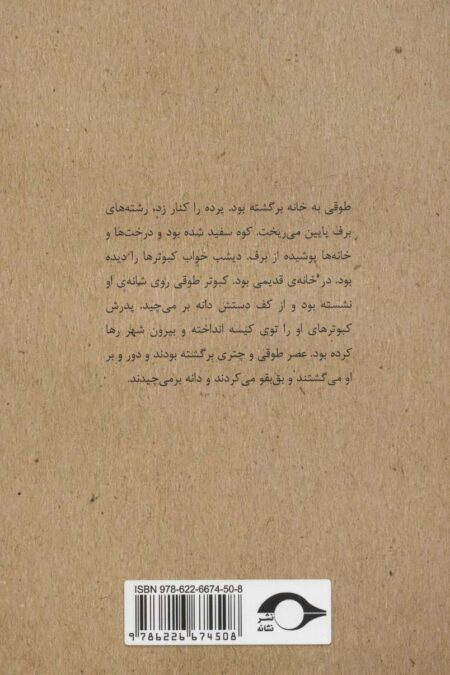 طوقی به خانه برگشته بود. پرده را کنار زد، رشته‌های
برف پایین می‌ریخت. کوه سفید شده بود و درخت‌ها و
خانه‌ها پوشیده از برف. دیشب خواب کبوترها را دیده
بود. در خانه‌ی قدیمی بود. کبوتر طوقی روی شانه‌ی او
نشسته بود و از کف دستش دانه بر می‌چید. پدرش
کبوترهای او را توی کیسه انداخته و بیرون شهر رها
کرده بود. عصر طوقی و چتری برگشته بودند و دور و بر
او می‌گشتند و بق‌بقو می‌کردند و دانه برمی‌چیدند.
ISBN 978-622-6674-50-8
9 786226 674508
نشر
نشانه